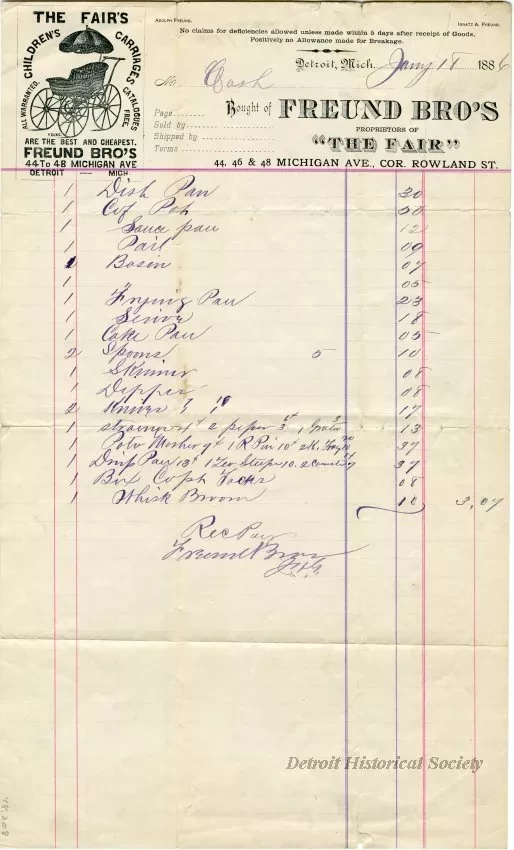 THE FAIR'S
CHILDREN'S CARRIAGES
ALL WARRANTED. CATALOGUES FREE.
ARE THE BEST AND CHEAPEST.
FREUND BRO'S
44 To 48 MICHIGAN AVE
DETROIT — MICH
ADOLPH FREUND. IGNATZ A. FREUND.
No claims for deficiencies allowed unless made within 5 days after receipt of Goods.
Positively no Allowance made for Breakage.
Detroit, Mich. Jany 18 1886
No Cash
Bought of FREUND BRO'S
Page
Sold by
Shipped by
Terms
PROPRIETORS OF
"THE FAIR"
44, 46 & 48 MICHIGAN AVE., COR. ROWLAND ST.
1 Dish Pan 30
1 Cof Pot 50
1 Sauce pan 12
1 Pail 09
1 Basin 07
1 05
1 Frying Pan 23
1 18
1 Cake Pan 05
2 Spoons 5 10
1 Skimer 08
1 Dipper 08
2 Knives & 17
1 2 3 1 13
1 Masher 1 R Pin 10 37
1 Pan 1 10 2 37
1 Box Tacks 08
1 Whisk Broom 10 3.07
Rec Pay
Freund Bros
Detroit Historical Society